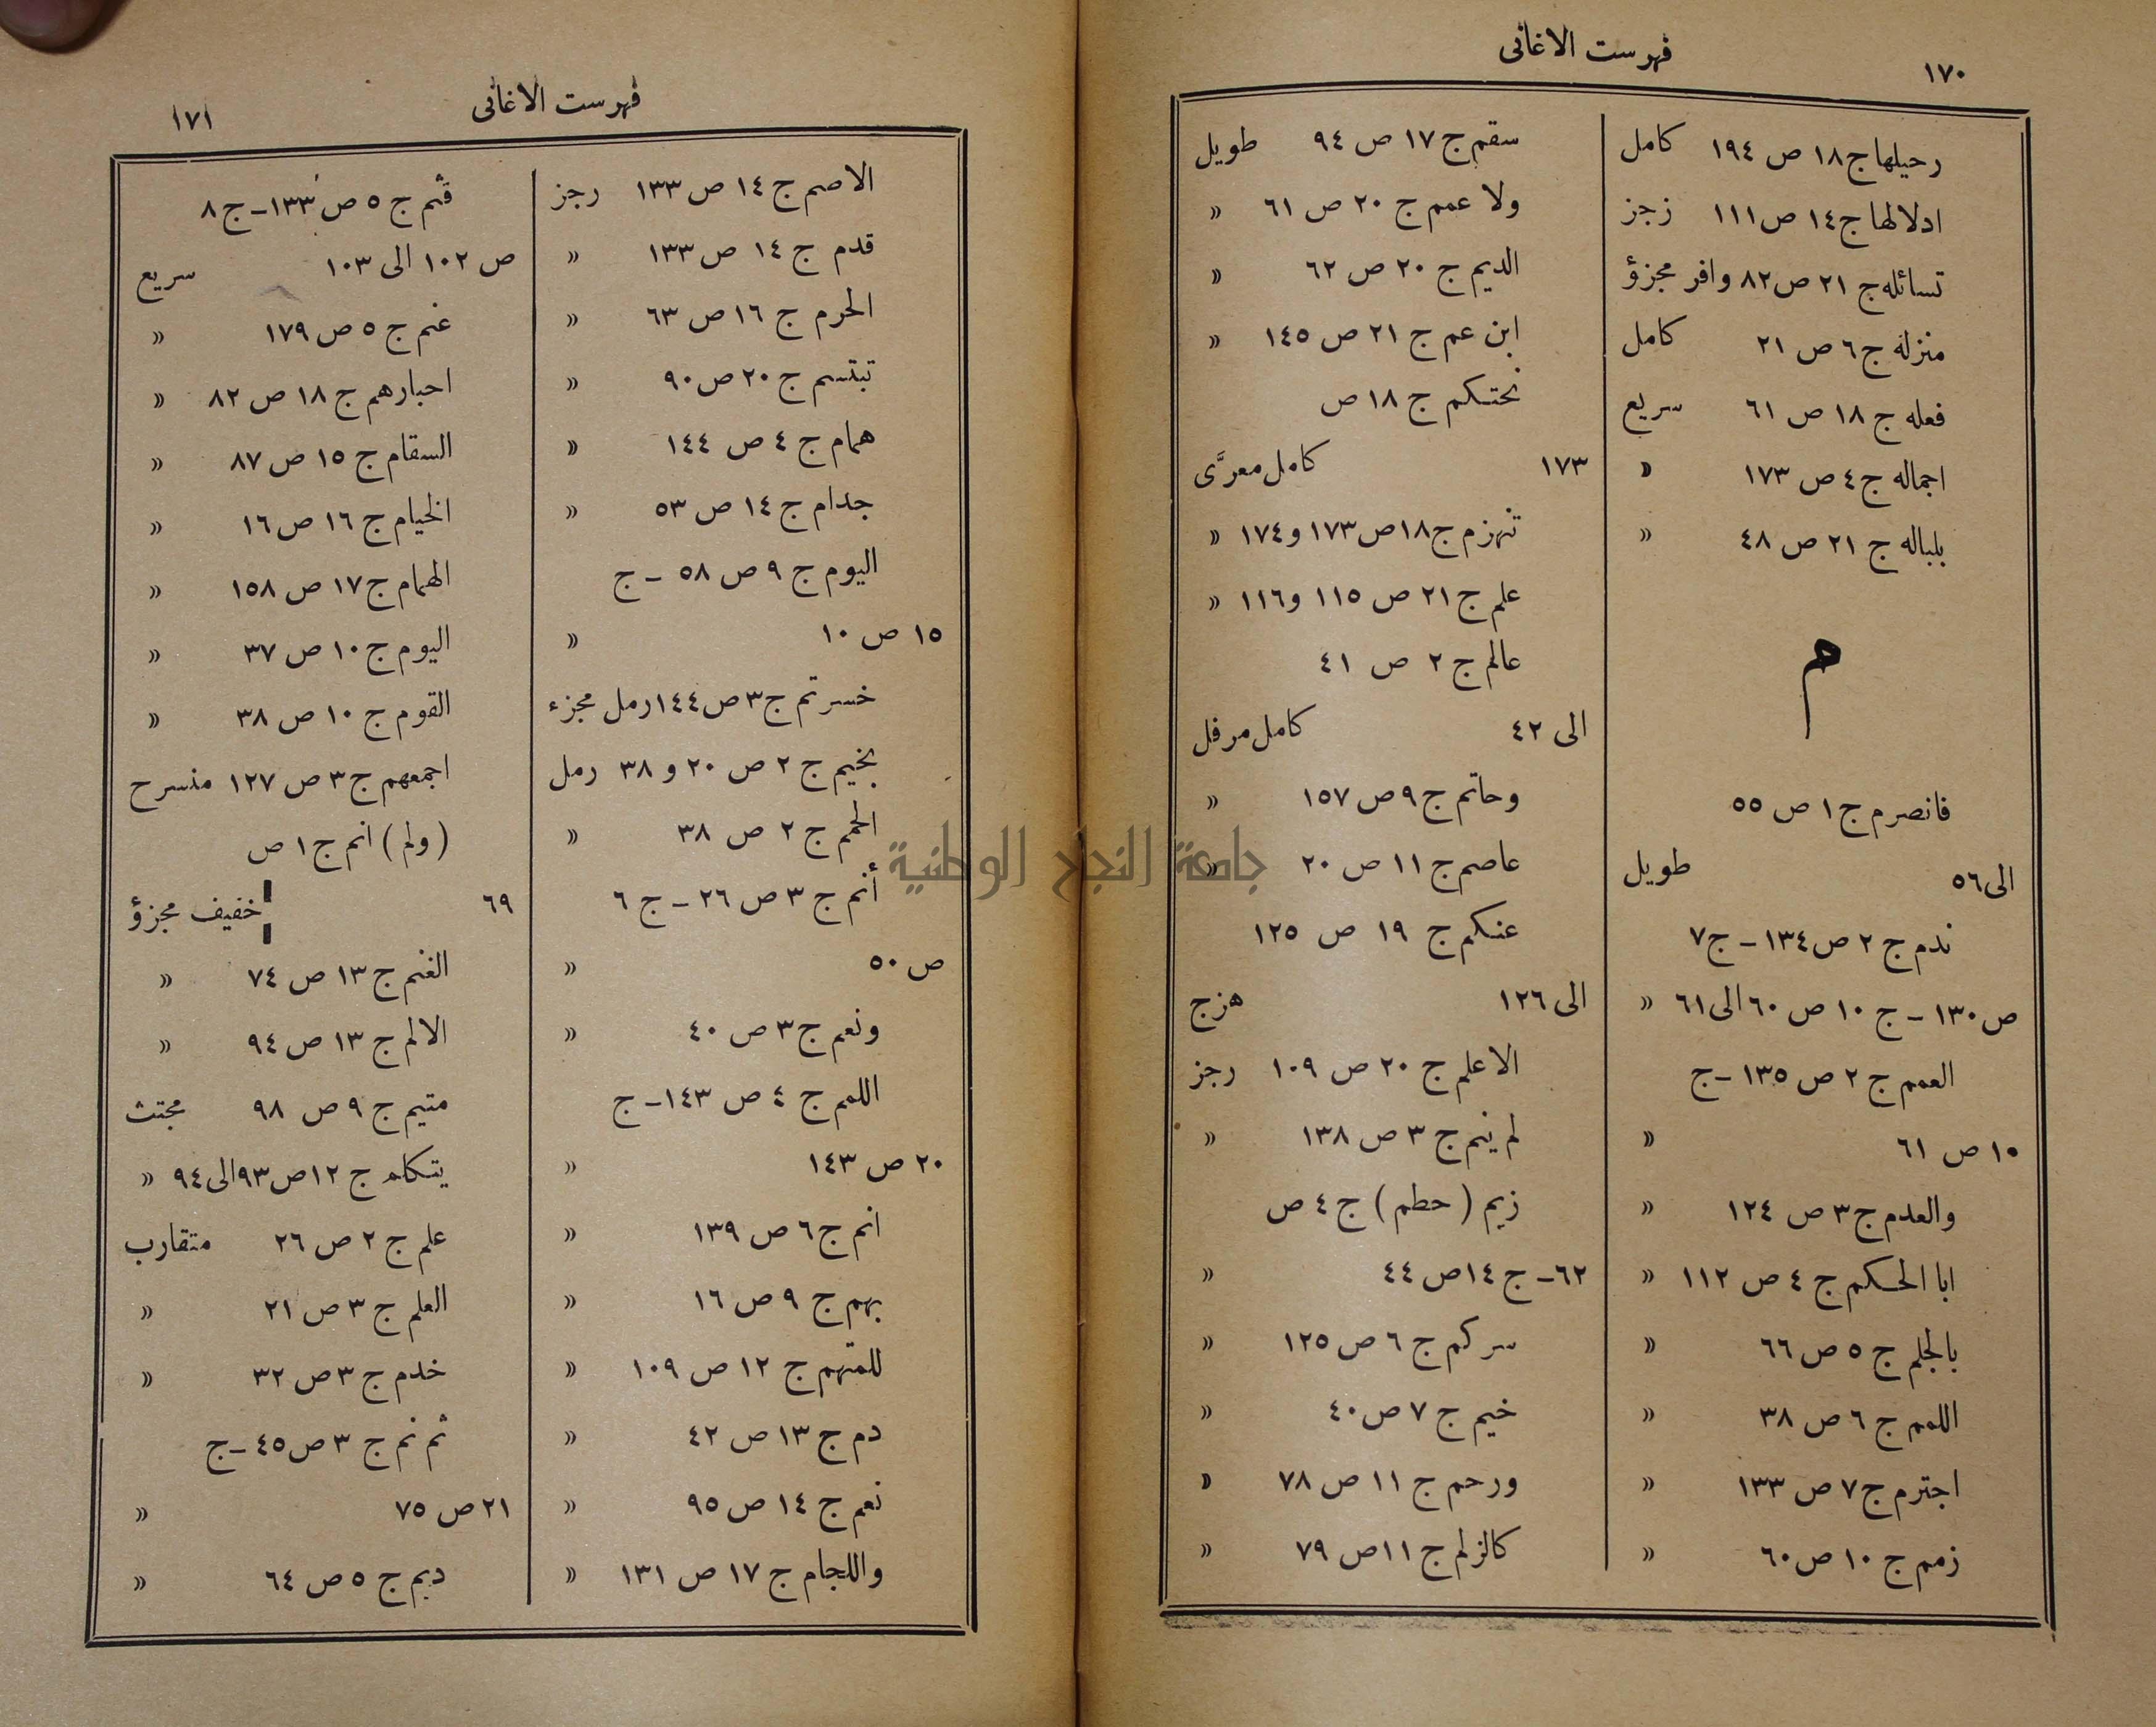 ١٧٠
فهرست الاغانى
رحيلها ج ١٨ ص ١٩٤ كامل
ادلالها ج ١٤ ص ١١١ زجز
تسائله ج ٢١ ص ٨٢ وافر مجزؤ
منزله ج ٦ ص ٢١ كامل
فعله ج ١٨ ص ٦١ سريع
اجماله ج ٤ ص ١٧٣ «
بلباله ج ٢١ ص ٤٨ «
م
فانصرم ج ١ ص ٥٥
الى ٥٦ طويل
ندم ج ٢ ص ١٣٤ - ج ٧
ص ١٣٠ - ج ١٠ ص ٦٠ الى ٦١ «
العمم ج ٢ ص ١٣٥ - ج
١٥ ص ٦١ «
والعدم ج ٣ ص ١٢٤ «
ابا الحكم ج ٤ ص ١١٢ «
بالجلم ج ٥ ص ٦٦ «
اللمم ج ٦ ص ٣٨ «
اجترم ج ٧ ص ١٣٣ «
زمم ج ١٠ ص ٦٠ «
سقم ج ١٧ ص ٩٤ طويل
ولا عمم ج ٢٠ ص ٦١ «
الديم ج ٢٠ ص ٦٢ «
ابن عم ج ٢١ ص ١٤٥ «
نحتكم ج ١٨ ص
١٧٣ كامل معرَّى
تنهزم ج ١٨ ص ١٧٣ و ١٧٤ «
علم ج ٢١ ص ١١٥ و ١١٦ «
عالم ج ٢ ص ٤١
الى ٤٢ كامل مرفل
وحاتم ج ٩ ص ١٥٧ «
عاصم ج ١١ ص ٢٠ «
عنكم ج ١٩ ص ١٢٥
الى ١٢٦ هزج
الاعلم ج ٢٠ ص ١٠٩ رجز
لم ينم ج ٣ ص ١٣٨ «
زيم (حطم) ج ٤ ص
٦٢ - ج ١٤ ص ٤٤ «
سركم ج ٦ ص ١٢٥ «
خيم ج ٧ ص ٤٠ «
ورحم ج ١١ ص ٧٨ «
كالزلم ج ١١ ص ٧٩ «
فهرست الاغانى
١٧١
الاصم ج ١٤ ص ١٣٣ رجز
قدم ج ١٤ ص ١٣٣ «
الحرم ج ١٦ ص ٦٣ «
تبتسم ج ٢٠ ص ٩٠ «
همام ج ٤ ص ١٤٤ «
جدام ج ١٤ ص ٥٣ «
اليوم ج ٩ ص ٥٨ - ج
١٥ ص ١٠ «
خسرتم ج ٣ ص ١٤٤ رمل مجزء
بخيم ج ٢ ص ٢٠ و ٣٨ رمل
الحمم ج ٢ ص ٣٨ «
أنم ج ٣ ص ٢٦ - ج ٦
ص ٥٠ «
ونعم ج ٣ ص ٤٠ «
اللمم ج ٤ ص ١٤٣ - ج
٢٠ ص ١٤٣ «
انم ج ٦ ص ١٣٩ «
بهم ج ٩ ص ١٦ «
للمتهم ج ١٢ ص ١٠٩ «
دم ج ١٣ ص ٤٢ «
نعم ج ١٤ ص ٩٥ «
واللجام ج ١٧ ص ١٣١ «
قثم ج ٥ ص ١٣٣ - ج ٨
ص ١٠٢ الى ١٠٣ سريع
غنم ج ٥ ص ١٧٩ «
احبارهم ج ١٨ ص ٨٢ «
السقام ج ١٥ ص ٨٧ «
الخيام ج ١٦ ص ١٦ «
الهمام ج ١٧ ص ١٥٨ «
اليوم ج ١٠ ص ٣٧ «
القوم ج ١٠ ص ٣٨ «
اجمعهم ج ٣ ص ١٢٧ منسرح
(ولم) انم ج ١ ص
٦٩ خفيف مجزؤ
الغنم ج ١٣ ص ٧٤ «
الالم ج ١٣ ص ٩٤ «
متيم ج ٩ ص ٩٨ مجتث
يتكلم ج ١٢ ص ٩٣ الى ٩٤ «
علم ج ٢ ص ٢٦ متقارب
العلم ج ٣ ص ٢١ «
خدم ج ٣ ص ٣٢ «
ثم نم ج ٣ ص ٤٥ - ج
٢١ ص ٧٥ «
ديم ج ٥ ص ٦٤ «
جامعة النجاح الوطنية